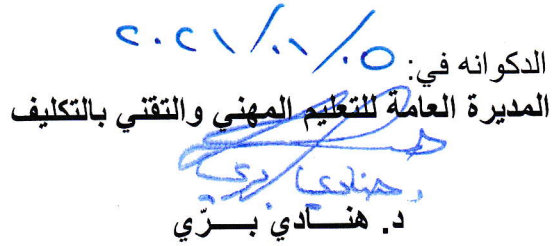 الدكوانه في: ٢٠٢١/٠١/٠٥
المديرة العامة للتعليم المهني والتقني بالتكليف
د. هنادي بري
د. هنــادي بــــرّي